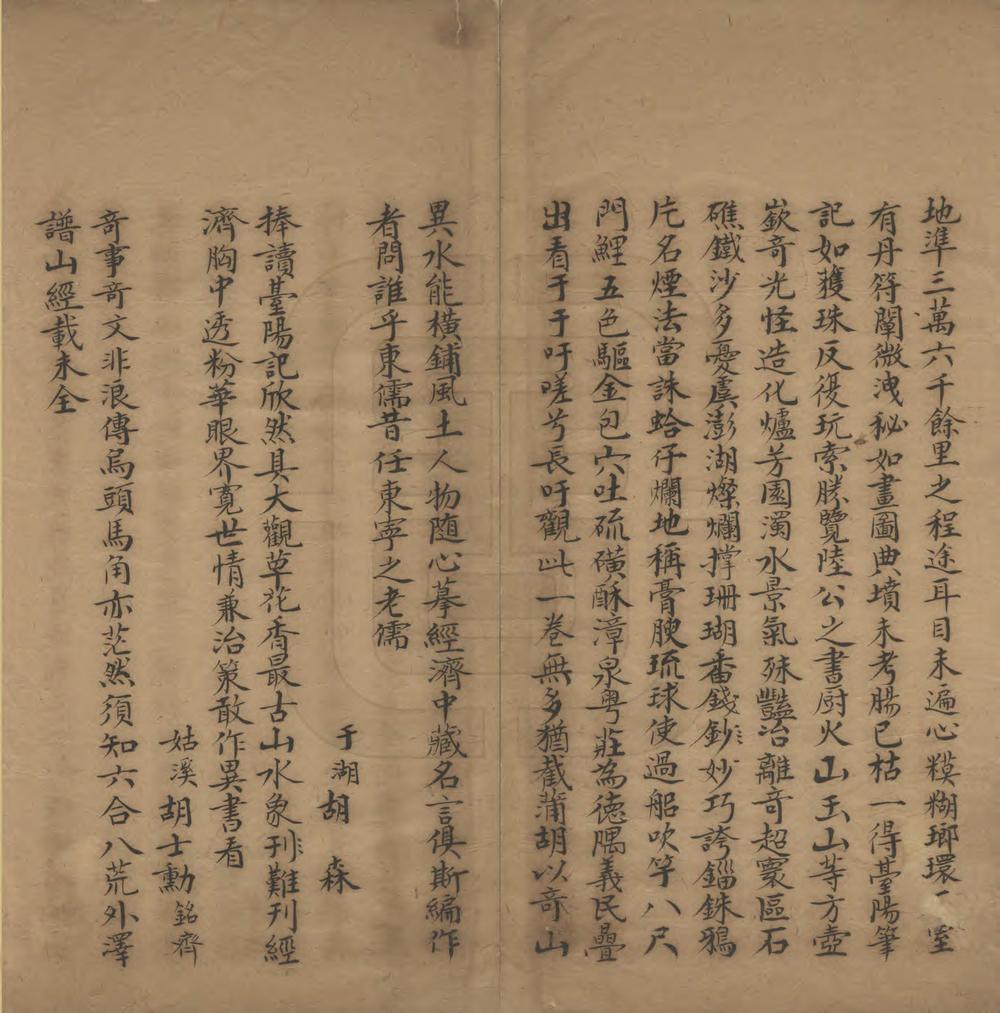 地準三萬六千餘里之程途耳目未遍心糢糊瑯環一室
有丹符闡微洩秘如畫圖典墳未考腸已枯一得臺陽筆
記如獲珠反復玩索勝覽陸公之書廚火山玉山等方壺
嶔奇光怪造化爐芳園濁水景氣殊豔冶離奇超寰區石
礁鐵沙多憂虞澎湖燦爛撑珊瑚番錢鈔妙巧誇錙銖鴉
片名煙法當誅蛤仔爛地稱膏腴琉球使過船吹竽八尺
門鯉五色驅金包穴吐硫磺酥漳泉粤莊為德隅義民疊
出看于于吁嗟兮長吁觀此一卷無多猶截蒲胡以奇山
異水能橫鋪風土人物隨心摹經濟中藏名言俱斯編作
者問誰乎東儒昔任東寧之老儒
于湖胡　森
捧讀臺陽記欣然具大觀草花香最古山水象刊難刊經
濟胸中透粉華眼界寬世情兼治策敢作異書看
姑溪胡士勳銘齊
奇事奇文非浪傳烏頭馬角亦茫然須知六合八荒外澤
譜山經載未全